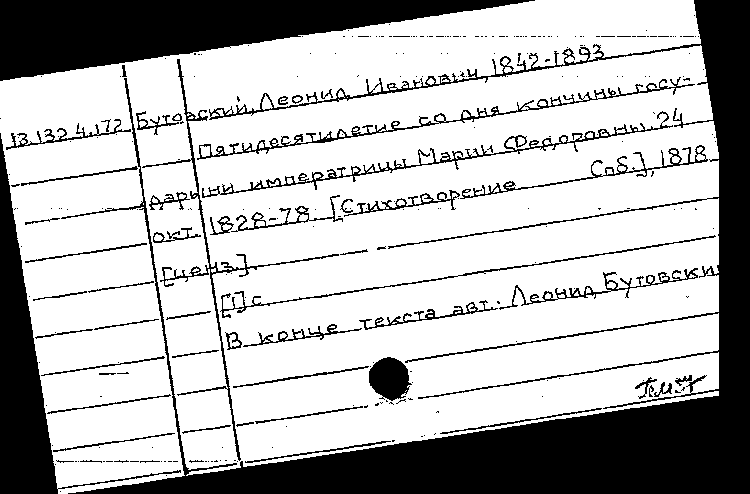 13.132.4.172 Бутовский, Леонид Иванович, 1842-1893
Пятидесятилетие со дня кончины госу-
дарыни императрицы Марии Федоровны. 24
окт. 1828-78. [Стихотворение Спб.], 1878
[ценз.].
[1] с.
В конце текста авт.: Леонид Бутовски